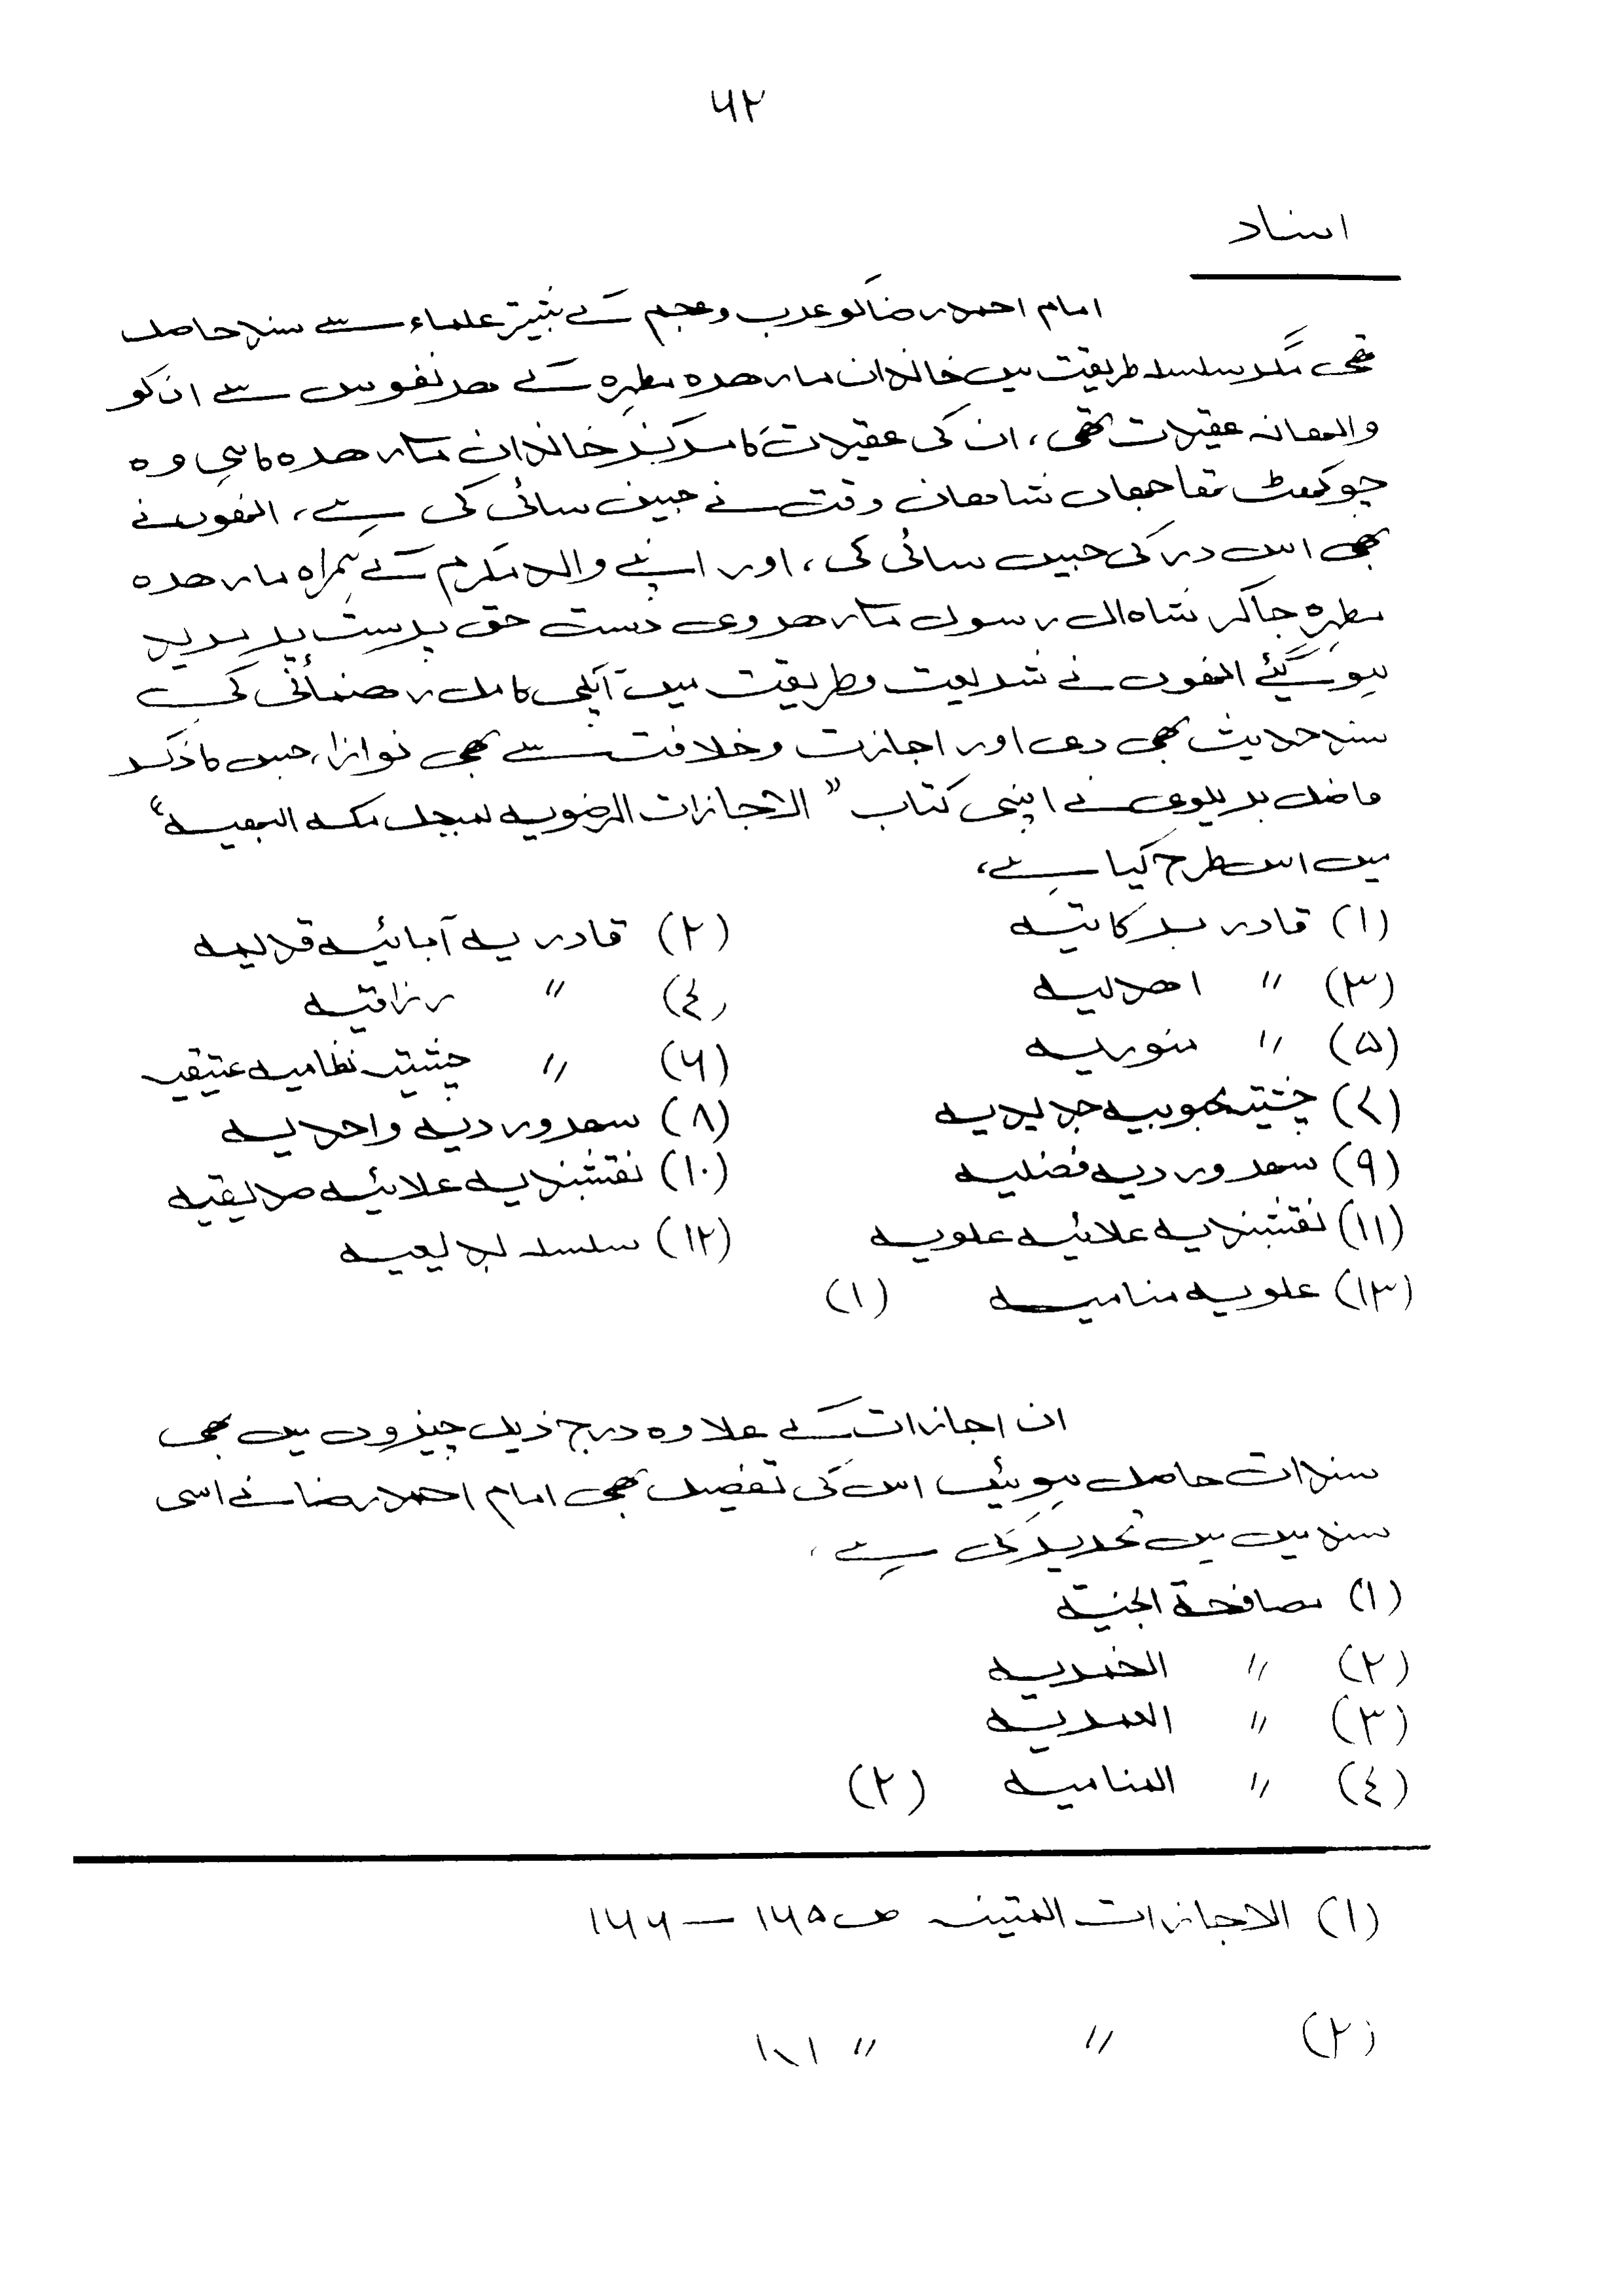 ۶۲
اسناد
امام احمد رضا کو عرب و عجم کے بیشتر علماء سے سند حاصل
تھی مگر سلسلہ طریقت میں خاندان مارھرہ مطہرہ کے ھر نفوس سے ان کو
والھانہ عقیدت تھی، ان کی عقیدت کا مرکز خاندان مارھرہ کا ہی وہ
چوکھٹ تھا جھاں شاھان وقت نے جبین سائی کی ہے، انھوں نے
بھی اس در کی جبیں سائی کی، اور اپنے والد مکرم کے ہمراہ مارھرہ
مطہرہ جاکر شاہ ال رسول مارھروی دست حق پرست پر مرید
ہو گئے انھوں نے شریعت و طریقت میں آپکی کامل رھنمائی کی
سند حدیث بھی دی اور اجازت و خلافت سے بھی نوازا، جس کا ذکر
فاضل بریلوی نے اپنی کتاب " الاجازات الرضویہ لمبجل مکہ البھیہ "
میں اس طرح کیا ہے،
(۱) قادر برکاتیہ (۲) قادریہ آبائیہ قدیمہ
(۳) " اھدلیہ (٤) " رزاقیہ
(۵) " منوریہ (۶) " چشتیہ نظامیہ عتیقیہ
(۷) چشتیہ محبوبیہ جدیدیہ (۸) سھروردیہ واحدیہ
(۹) سھروردیہ فضلیہ (۱۰) نقشبندیہ علائیہ صدیقیہ
(۱۱) نقشبندیہ علائیہ علویہ (۱۲) سلسلہ بدیعیہ
(۱۳) علویہ منامیہ (۱)
ان اجازات کے علاوہ درج ذیل چیزوں میں بھی
سندات حاصل ہوئیں اس کی تفصیل بھی امام احمد رضا نے اسی
سند میں میں تحریر کی ہے،
(۱) مصافحۃ الجنیۃ
(۲) " الخضریہ
(۳) " العمریہ
(٤) " المنامیہ (۲)
(۱) الاجازات المتینہ ص ۱۶۵ — ۱۶۶
(۲) " " ۱۸۱